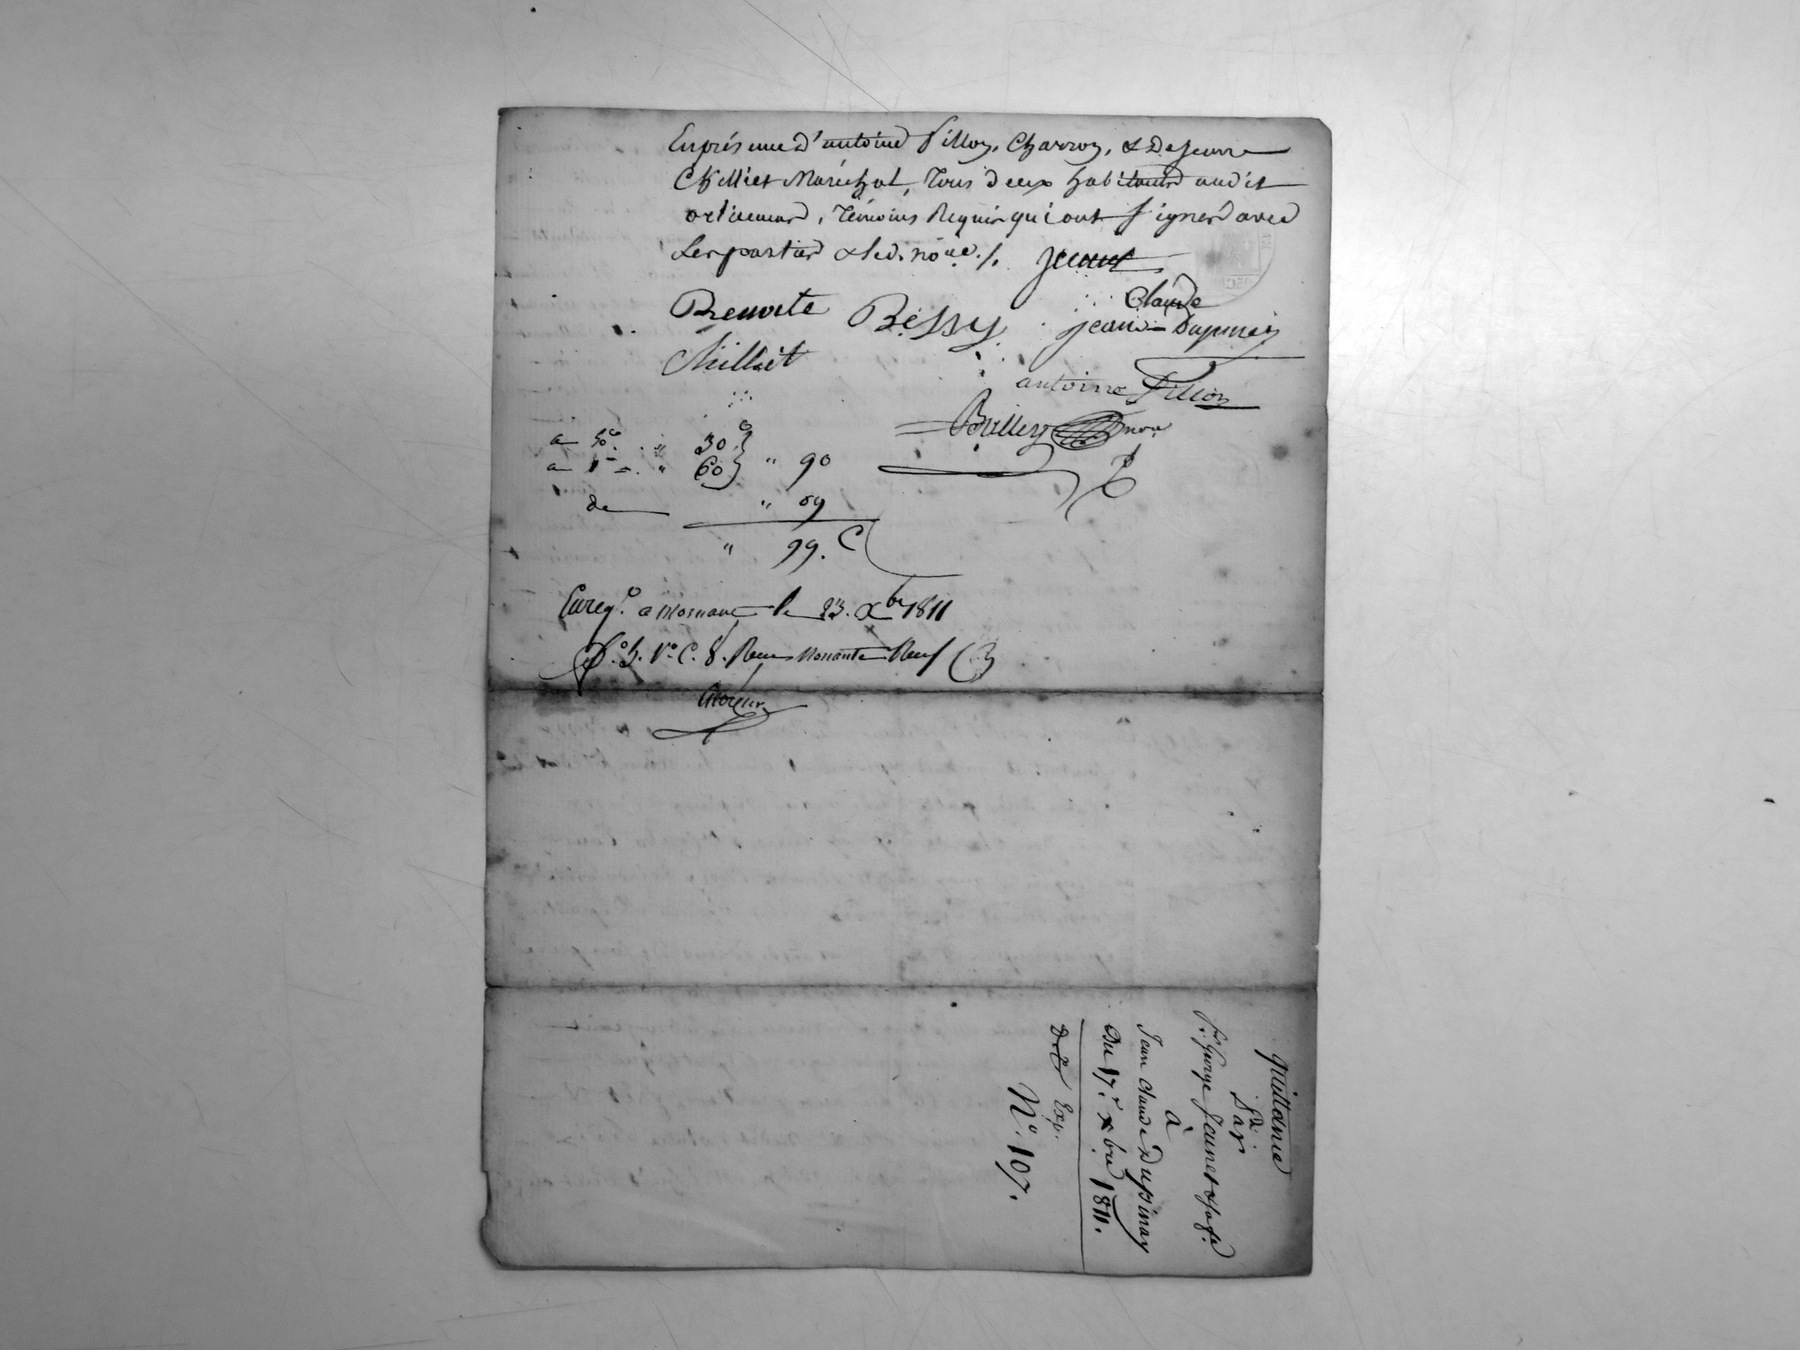 En présence d'antoine Pillon, Charron, & De Jeanne
Chilliet Maréchal, Tous deux habitants audit
orlienas, Témoins Requis qui ont signés avec
Les parties & led. nore ./. Jeunet
Claude
Benoite Bessy jean Dupinay
Chilliet
antoine Pillon
Builley nore
a 50c. " 30 c
a 1 " 60 } " 90
de " 09
" 99. C
Enregé. a Mornant le 23. Xbre 1811
fo. 5. Vo. C. 8. Reçu Nonante Neuf C.
Quittance
Par
P. George Jeunet & sa fe.
à
Jean Claude Dupinay
Du 17. Xbre 1811.
Exp.
No. 107.